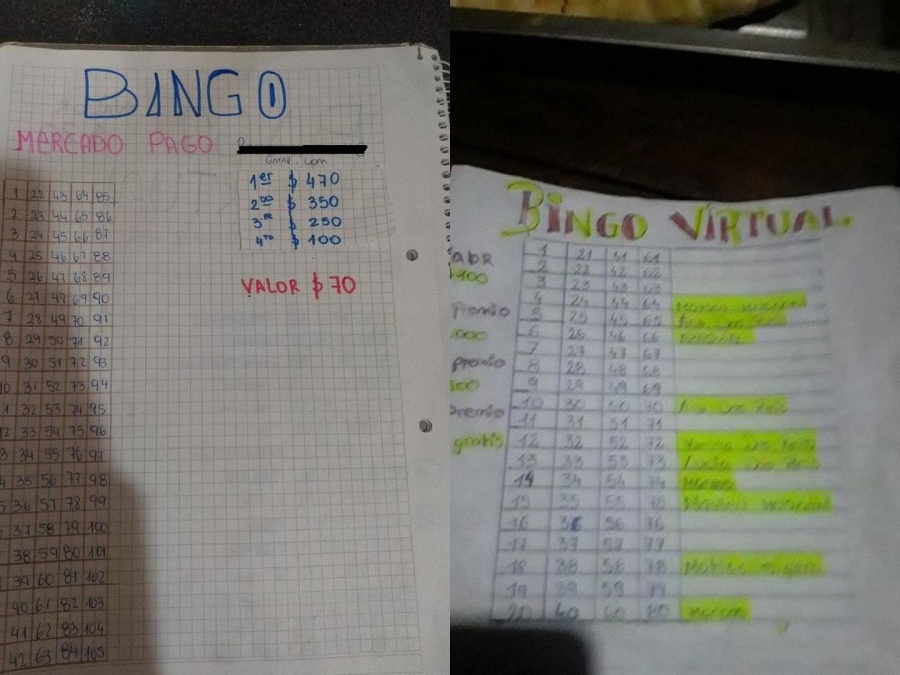 BINGO
MERCADO PAGO
GMAIL.COM
1er $ 470
2do $ 350
3er $ 250
4to $ 100
VALOR $ 70
1 22 43 64 85
2 23 44 65 86
3 24 45 66 87
4 25 46 67 88
5 26 47 68 89
6 27 48 69 90
7 28 49 70 91
8 29 50 71 92
9 30 51 72 93
10 31 52 73 94
1 32 53 74 95
2 33 54 75 96
3 34 55 76 97
4 35 56 77 98
5 36 57 78 99
37 58 79 100
38 59 80 101
39 60 81 102
40 61 82 103
41 62 83 104
42 63 84 105
BINGO VIRTUAL
100
Premio
000
premio
100
premio
gratis
1 21 41 61
2 22 42 62
3 23 43 63
4 24 44 64
5 25 45 65
6 26 46 66
7 27 47 67
8 28 48 68
9 29 49 69
10 30 50 70
11 31 51 71
12 32 52 72
13 33 53 73
14 34 54 74 Marcos
15 35 55 75
16 36 56 76
17 37 57 77
18 38 58 78 Matias
19 39 59 79
20 40 60 80 Marcos